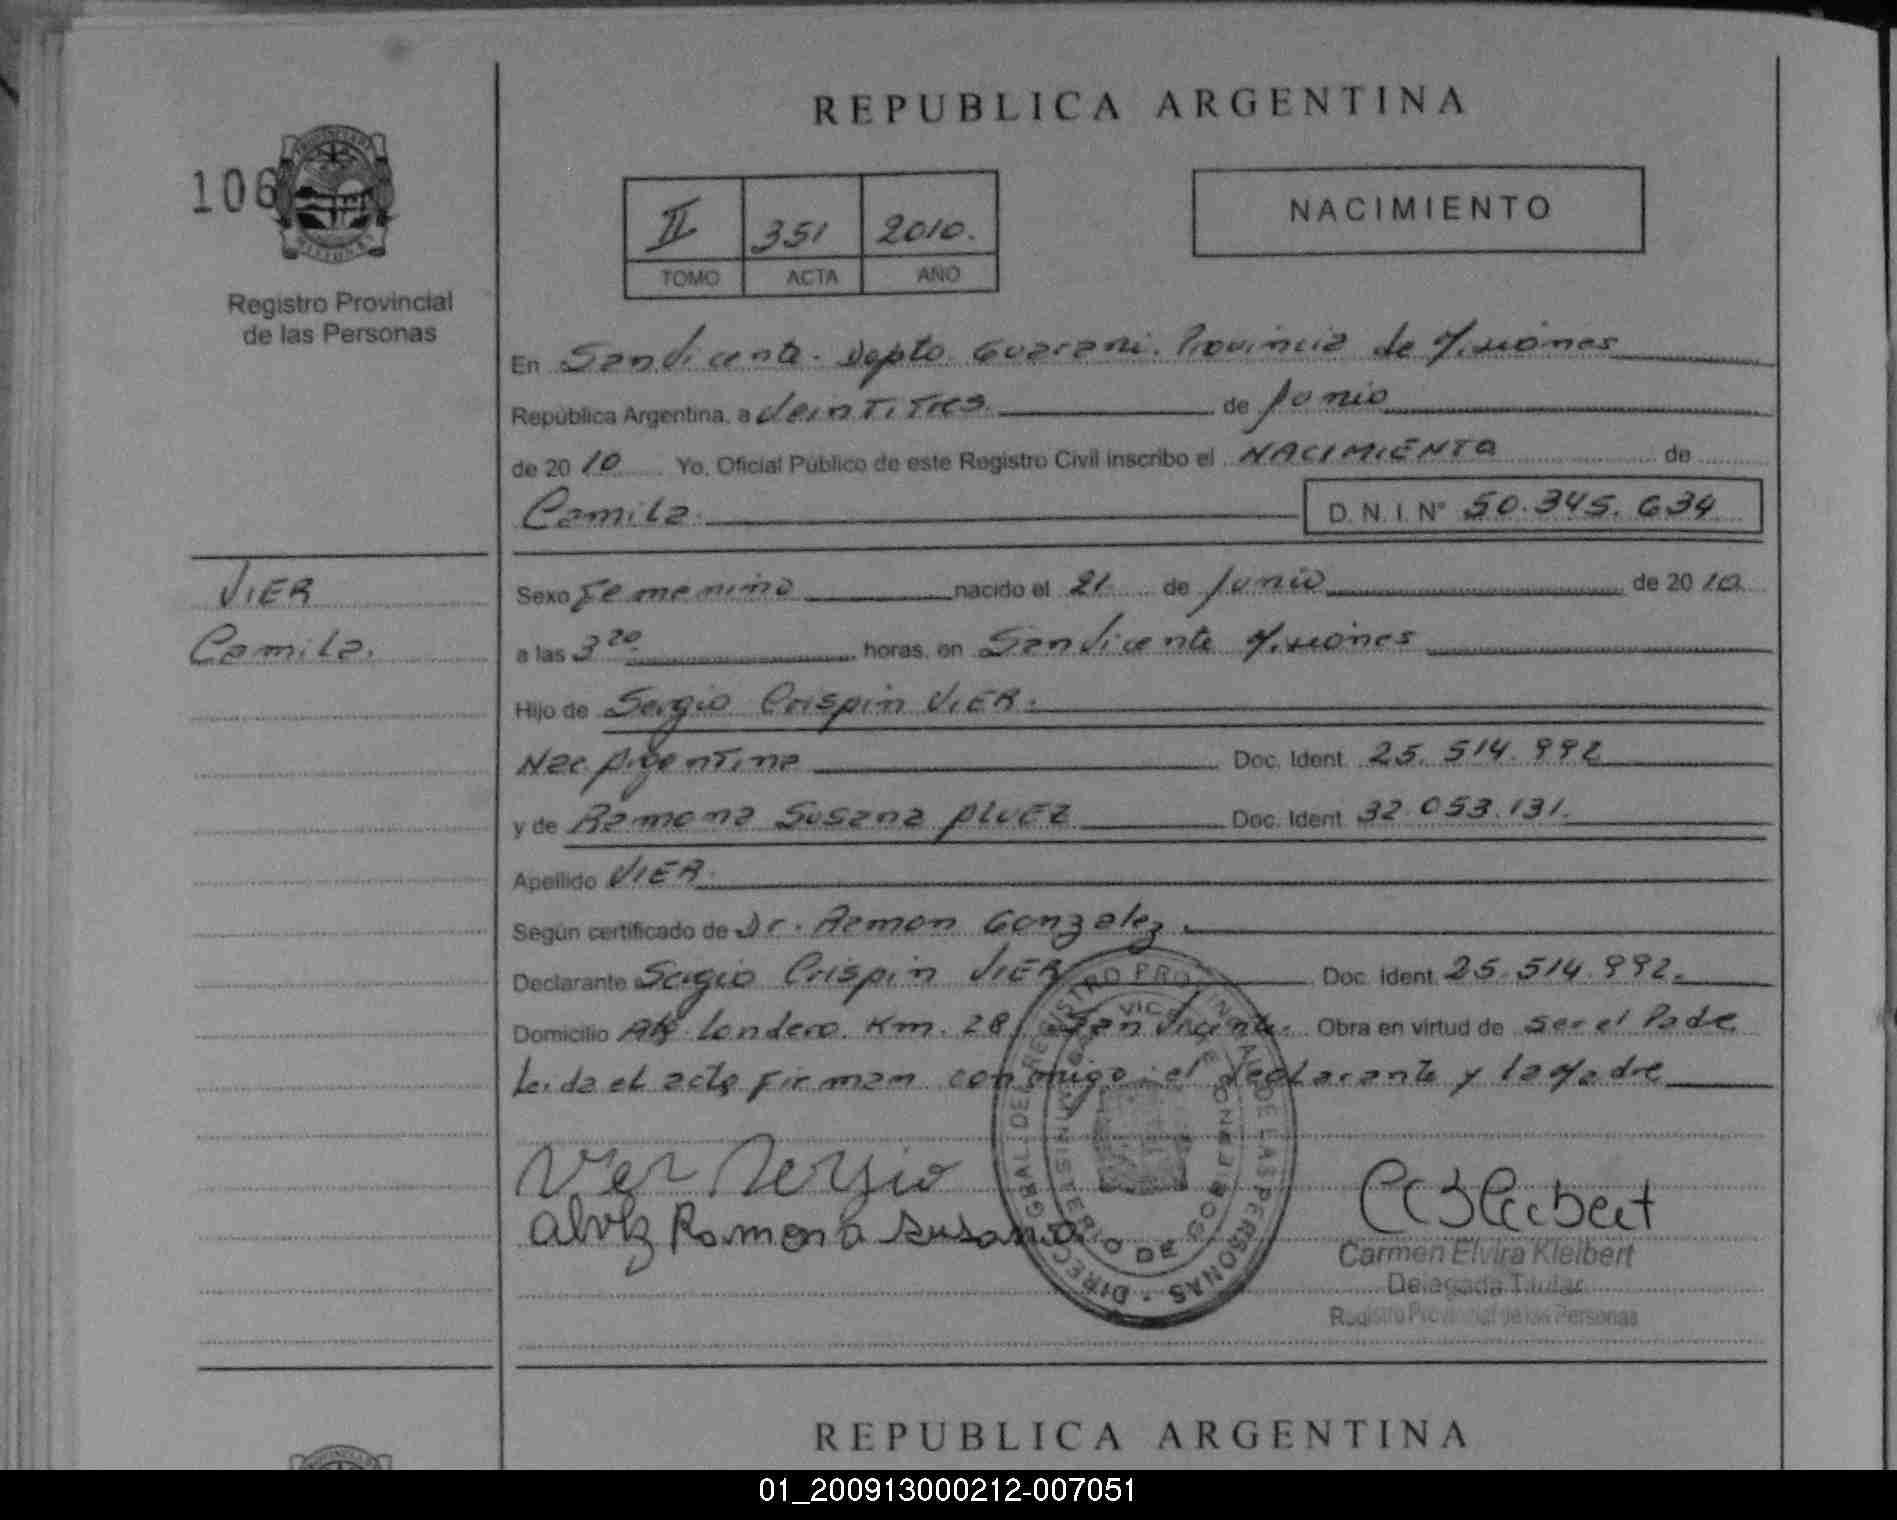 REPUBLICA ARGENTINA
106
Registro Provincial
de las Personas
II 351 2010.
TOMO ACTA AÑO
NACIMIENTO
En San Vicente. Depto Guarani. Provincia de Misiones
República Argentina, a Veintitres de Junio
de 2010 Yo, Oficial Público de este Registro Civil inscribo el NACIMIENTO de
Camila. D. N. I. N° 50.345.634
VIER
Camila.
Sexo Femenino nacido el 21 de Junio de 2010
a las 3 20 horas, en San Vicente Misiones
Hijo de Sergio Crispin VIER.
Nac. Argentina Doc. Ident. 25.514.992
y de Ramona Susana ALVEZ Doc. Ident. 32.053.131.
Apellido VIER.
Según certificado de Dr. Ramon Gonzalez.
Declarante Sergio Crispin VIER Doc. Ident. 25.514.992.
Domicilio Londero. Km. 28. San Vicente. Obra en virtud de ser el Padre
Leida el acta firman conmigo el declarante y la Madre
Vier Sergio
Alvez Ramona Susana
DIRECC. GRAL. DEL REGISTRO PROVINCIAL DE LAS PERSONAS
MINISTERIO DE
Carmen Elvira Kleibert
Delegada Titular
Registro Provincial de las Personas
REPUBLICA ARGENTINA
01_200913000212-007051